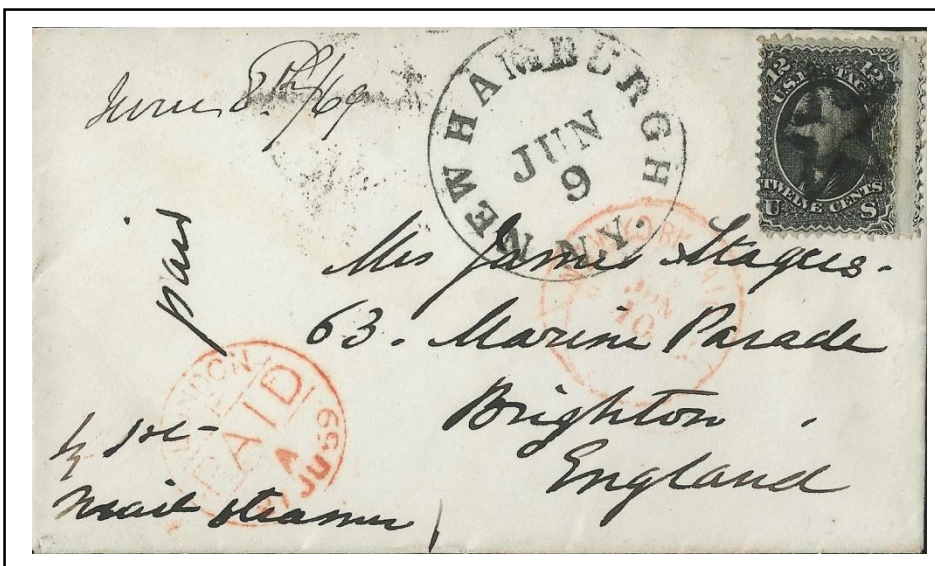 June 8th/69
NEW HAMBURGH
JUN
9
N.Y.
12 U.S. POSTAGE 12
TWELVE CENTS
U S
paid
NEW YORK PAID
JUN
10
Mrs James
63. Marine Parade
Brighton
England
LONDON
PAID
A
JU 69
by 1st
Mail steamer